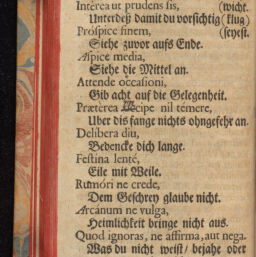 Interea ut prudens sis, (wicht.
Unterdeß damit du vorsichtig (klug)
Prospice finem, (seyest.
Siehe zuvor aufs Ende.
Aspice media,
Siehe die Mittel an.
Attende occasioni,
Gib acht auf die Gelegenheit.
Præterea nil temere,
Uber dis fange nichts ohngefehr an.
Delibera diu,
Bedencke dich lange.
Festina lentè,
Eile mit Weile.
Rumori ne crede,
Dem Geschrey glaube nicht.
Arcanum ne vulga,
Heimlichkeit bringe nicht aus.
Quod ignoras, ne affirma, aut nega.
Was du nicht weist / bejahe oder